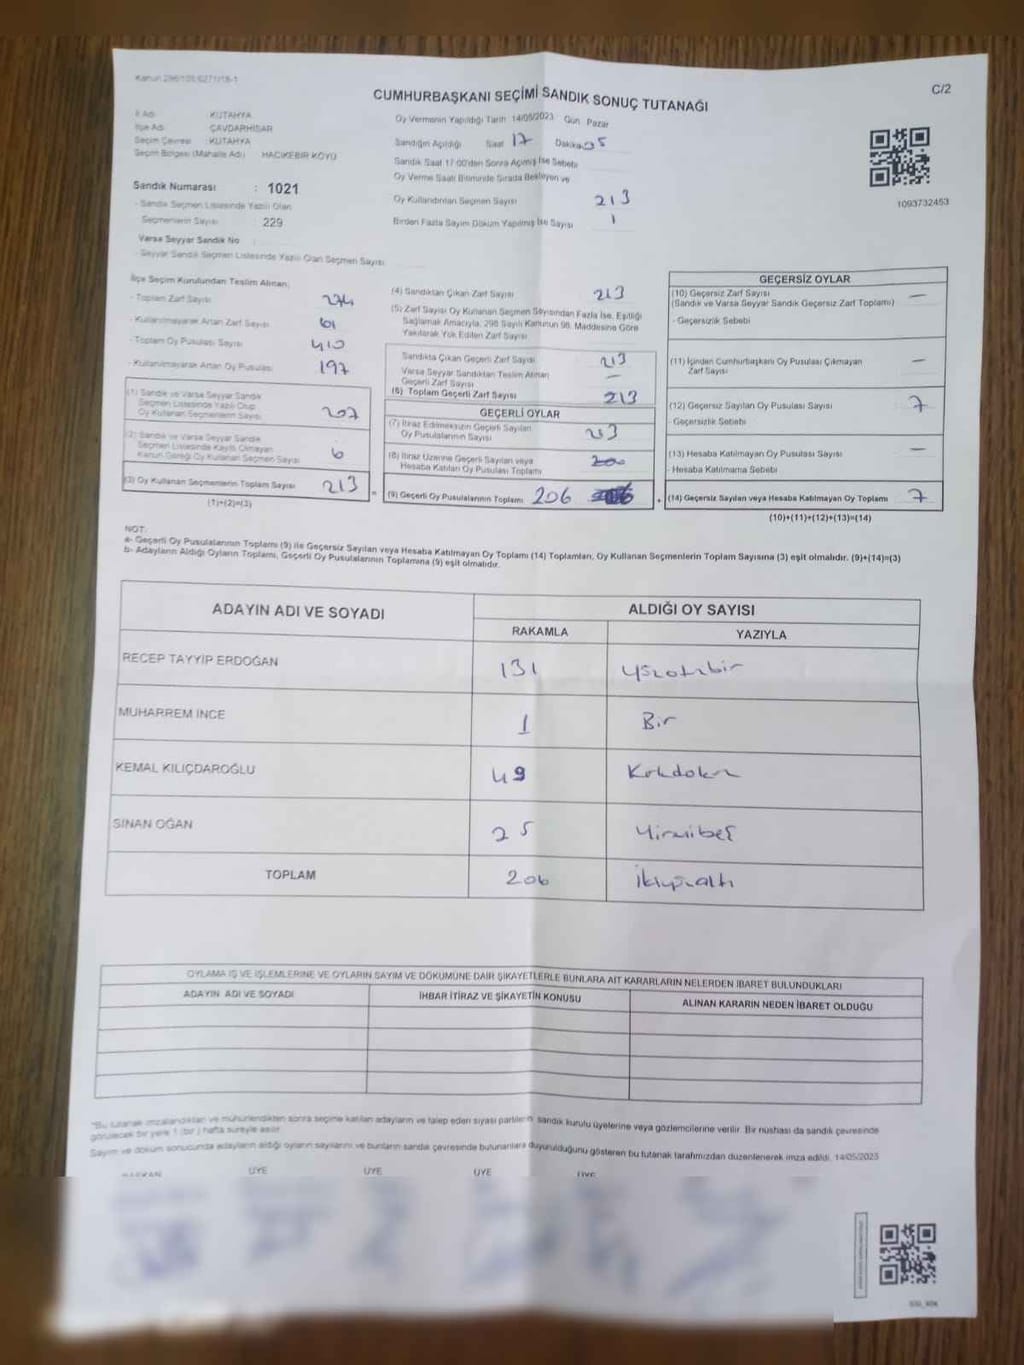 Kanun 298/105 6271/18-1
C/2
CUMHURBAŞKANI SEÇİMİ SANDIK SONUÇ TUTANAĞI
İl Adı : KÜTAHYA
İlçe Adı : ÇAVDARHİSAR
Seçim Çevresi : KÜTAHYA
Seçim Bölgesi (Mahalle Adı) HACIKEBİR KÖYÜ
Sandık Numarası : 1021
- Sandık Seçmen Listesinde Yazılı Olan
Seçmenlerin Sayısı 229
Varsa Seyyar Sandık No
- Seyyar Sandık Seçmen Listesinde Yazılı Olan Seçmen Sayısı
Oy Vermenin Yapıldığı Tarih 14/05/2023 Gün Pazar
Sandığın Açıldığı Saat 17 Dakika 05
Sandık Saat 17:00'den Sonra Açılmış İse Sebebi
Oy Verme Saati Bitiminde Sırada Bekleyen ve
Oy Kullandırılan Seçmen Sayısı 213
Birden Fazla Sayım Döküm Yapılmış İse Sayısı 1
1093732453
İlçe Seçim Kurulundan Teslim Alınan;
- Toplam Zarf Sayısı 274
- Kullanılmayarak Artan Zarf Sayısı 61
- Toplam Oy Pusulası Sayısı 410
- Kullanılmayarak Artan Oy Pusulası 197
(1) Sandık ve Varsa Seyyar Sandık
Seçmen Listesinde Yazılı Olup
Oy Kullanan Seçmenlerin Sayısı 207
(2) Sandık ve Varsa Seyyar Sandık
Seçmen Listesinde Kayıtlı Olmayan
Kanun Gereği Oy Kullanan Seçmen Sayısı 6
(3) Oy Kullanan Seçmenlerin Toplam Sayısı 213
(1)+(2)=(3)
(4) Sandıktan Çıkan Zarf Sayısı 213
(5) Zarf Sayısı Oy Kullanan Seçmen Sayısından Fazla İse, Eşitliği
Sağlamak Amacıyla, 298 Sayılı Kanunun 98. Maddesine Göre
Yakılarak Yok Edilen Zarf Sayısı
Sandıkta Çıkan Geçerli Zarf Sayısı 213
Varsa Seyyar Sandıktan Teslim Alınan
Geçerli Zarf Sayısı —
(6) Toplam Geçerli Zarf Sayısı 213
GEÇERLİ OYLAR
(7) İtiraz Edilmeksizin Geçerli Sayılan
Oy Pusulalarının Sayısı 213
(8) İtiraz Üzerine Geçerli Sayılan veya
Hesaba Katılan Oy Pusulası Toplamı
= (9) Geçerli Oy Pusulalarının Toplamı 206
GEÇERSİZ OYLAR
(10) Geçersiz Zarf Sayısı —
(Sandık ve Varsa Seyyar Sandık Geçersiz Zarf Toplamı)
- Geçersizlik Sebebi
(11) İçinden Cumhurbaşkanı Oy Pusulası Çıkmayan —
Zarf Sayısı
(12) Geçersiz Sayılan Oy Pusulası Sayısı 7
- Geçersizlik Sebebi
(13) Hesaba Katılmayan Oy Pusulası Sayısı —
- Hesaba Katılmama Sebebi
+ (14) Geçersiz Sayılan veya Hesaba Katılmayan Oy Toplamı 7
(10)+(11)+(12)+(13)=(14)
NOT:
a- Geçerli Oy Pusulalarının Toplamı (9) ile Geçersiz Sayılan veya Hesaba Katılmayan Oy Toplamı (14) Toplamları, Oy Kullanan Seçmenlerin Toplam Sayısına (3) eşit olmalıdır. (9)+(14)=(3)
b- Adayların Aldığı Oyların Toplamı, Geçerli Oy Pusulalarının Toplamına (9) eşit olmalıdır.
ADAYIN ADI VE SOYADI ALDIĞI OY SAYISI
RAKAMLA YAZIYLA
RECEP TAYYİP ERDOĞAN 131 yüzotuzbir
MUHARREM İNCE 1 Bir
KEMAL KILIÇDAROĞLU 49 Kırkdokuz
SİNAN OĞAN 25 Yirmibeş
TOPLAM 206 İkiyüzaltı
OYLAMA İŞ VE İŞLEMLERİNE VE OYLARIN SAYIM VE DÖKÜMÜNE DAİR ŞİKAYETLERLE BUNLARA AİT KARARLARIN NELERDEN İBARET BULUNDUKLARI
ADAYIN ADI VE SOYADI İHBAR İTİRAZ VE ŞİKAYETİN KONUSU ALINAN KARARIN NEDEN İBARET OLDUĞU
"Bu tutanak imzalandıktan ve mühürlendikten sonra seçime katılan adayların ve talep eden siyasi partilerin sandık kurulu üyelerine veya gözlemcilerine verilir. Bir nüshası da sandık çevresinde
görülecek bir yere 1 (bir) hafta süreyle asılır.
Sayım ve döküm sonucunda adayların aldığı oyların sayılarını ve bunların sandık çevresinde bulunanlara duyurulduğunu gösteren bu tutanak tarafımızdan düzenlenerek imza edildi. 14/05/2023
BAŞKAN ÜYE ÜYE ÜYE ÜYE